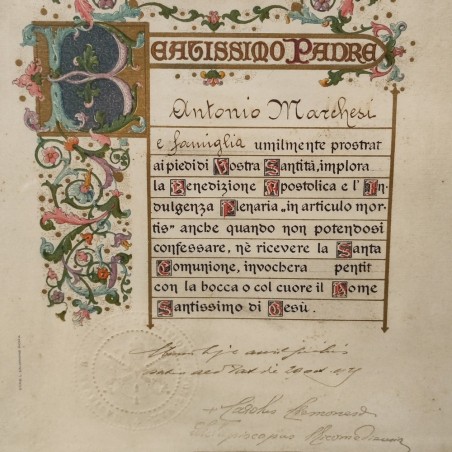 BEATISSIMO PADRE
Antonio Marchesi
e famiglia umilmente prostrat
ai piedi di Vostra Santità, implora
la Benedizione Apostolica e l'In
dulgenza Plenaria „in articulo mor-
tis" anche quando non potendosi
confessare, nè ricevere la Santa
Comunione, invochera pentit
con la bocca o col cuore il Nome
Santissimo di Gesù.